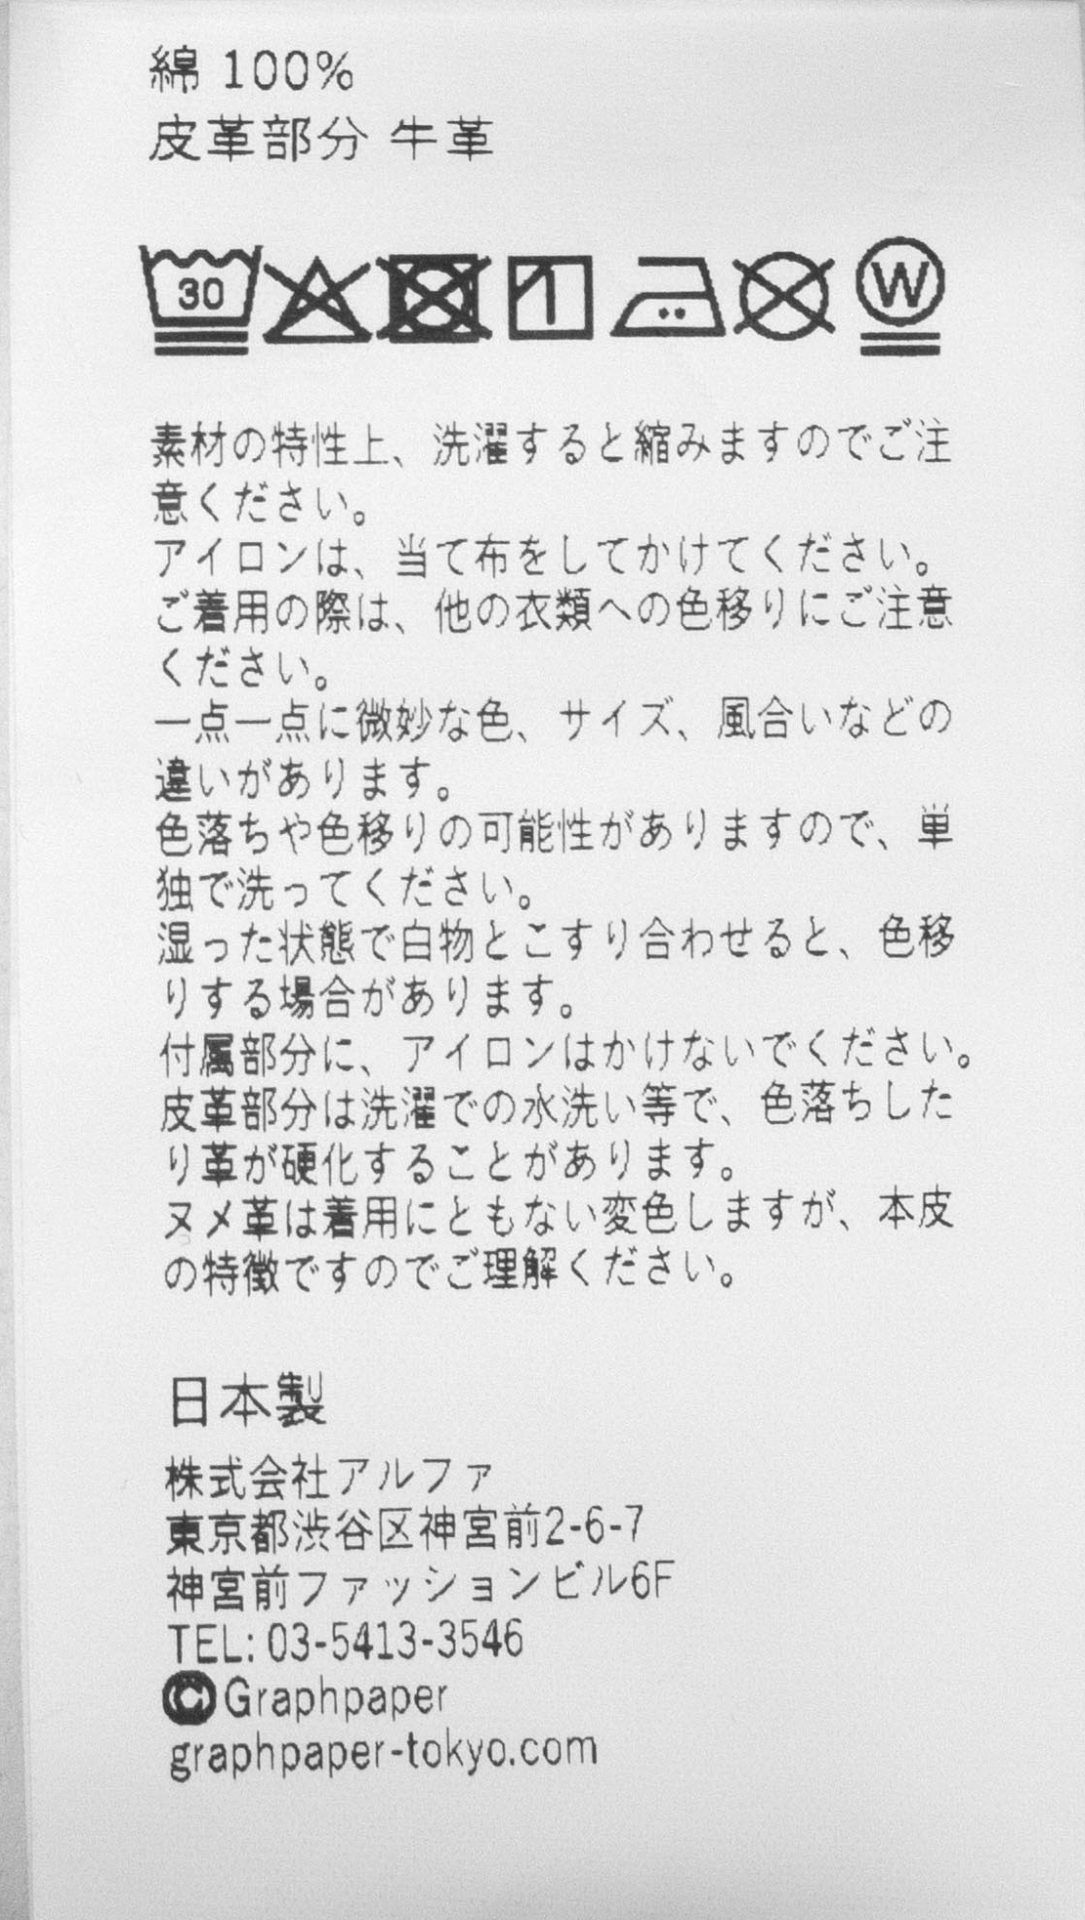 綿 100%
皮革部分 牛革
30
W
素材の特性上、洗濯すると縮みますのでご注
意ください。
アイロンは、当て布をしてかけてください。
ご着用の際は、他の衣類への色移りにご注意
ください。
一点一点に微妙な色、サイズ、風合いなどの
違いがあります。
色落ちや色移りの可能性がありますので、単
独で洗ってください。
湿った状態で白物とこすり合わせると、色移
りする場合があります。
付属部分に、アイロンはかけないでください。
皮革部分は洗濯での水洗い等で、色落ちした
り革が硬化することがあります。
ヌメ革は着用にともない変色しますが、本皮
の特徴ですのでご理解ください。
日本製
株式会社アルファ
東京都渋谷区神宮前2-6-7
神宮前ファッションビル6F
TEL: 03-5413-3546
©Graphpaper
graphpaper-tokyo.com